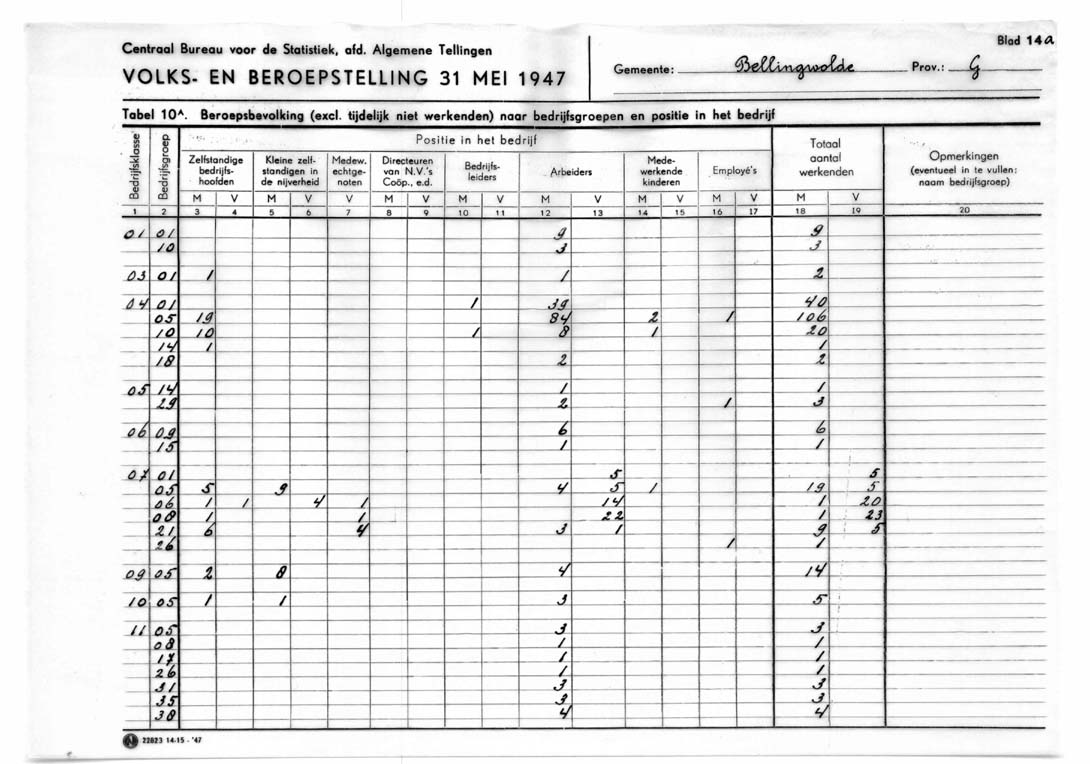 Blad 14a
Centraal Bureau voor de Statistiek, afd. Algemene Tellingen
VOLKS- EN BEROEPSTELLING 31 MEI 1947
Gemeente: Bellingwolde Prov.: G
Tabel 10A. Beroepsbevolking (excl. tijdelijk niet werkenden) naar bedrijfsgroepen en positie in het bedrijf
Bedrijfsklasse
Bedrijfsgroep
Positie in het bedrijf
Zelfstandige bedrijfs-hoofden
Kleine zelf-standigen in de nijverheid
Medew. echtge-noten
Directeuren van N.V.'s Coöp., e.d.
Bedrijfs-leiders
Arbeiders
Mede-werkende kinderen
Employé's
Totaal aantal werkenden
Opmerkingen (eventueel in te vullen: naam bedrijfsgroep)
M V M V V M V M V M V M V M V M V
1 2 3 4 5 6 7 8 9 10 11 12 13 14 15 16 17 18 19 20
01 01 9 9
10 3 3
03 01 1 1 2
04 01 1 39 40
05 19 84 2 1 106
10 10 1 8 1 20
14 1 1
18 2 2
05 14 1 1
29 2 1 3
06 09 6 6
15 1 1
07 01 5 5
05 5 9 4 5 1 19 5
06 1 1 4 1 14 1 20
08 1 1 22 1 23
21 6 4 3 1 9 5
26 1 1
09 05 2 8 4 14
10 05 1 1 3 5
11 05 3 3
08 1 1
17 1 1
26 1 1
31 3 3
35 3 3
38 4 4
22823 14-15 - '47